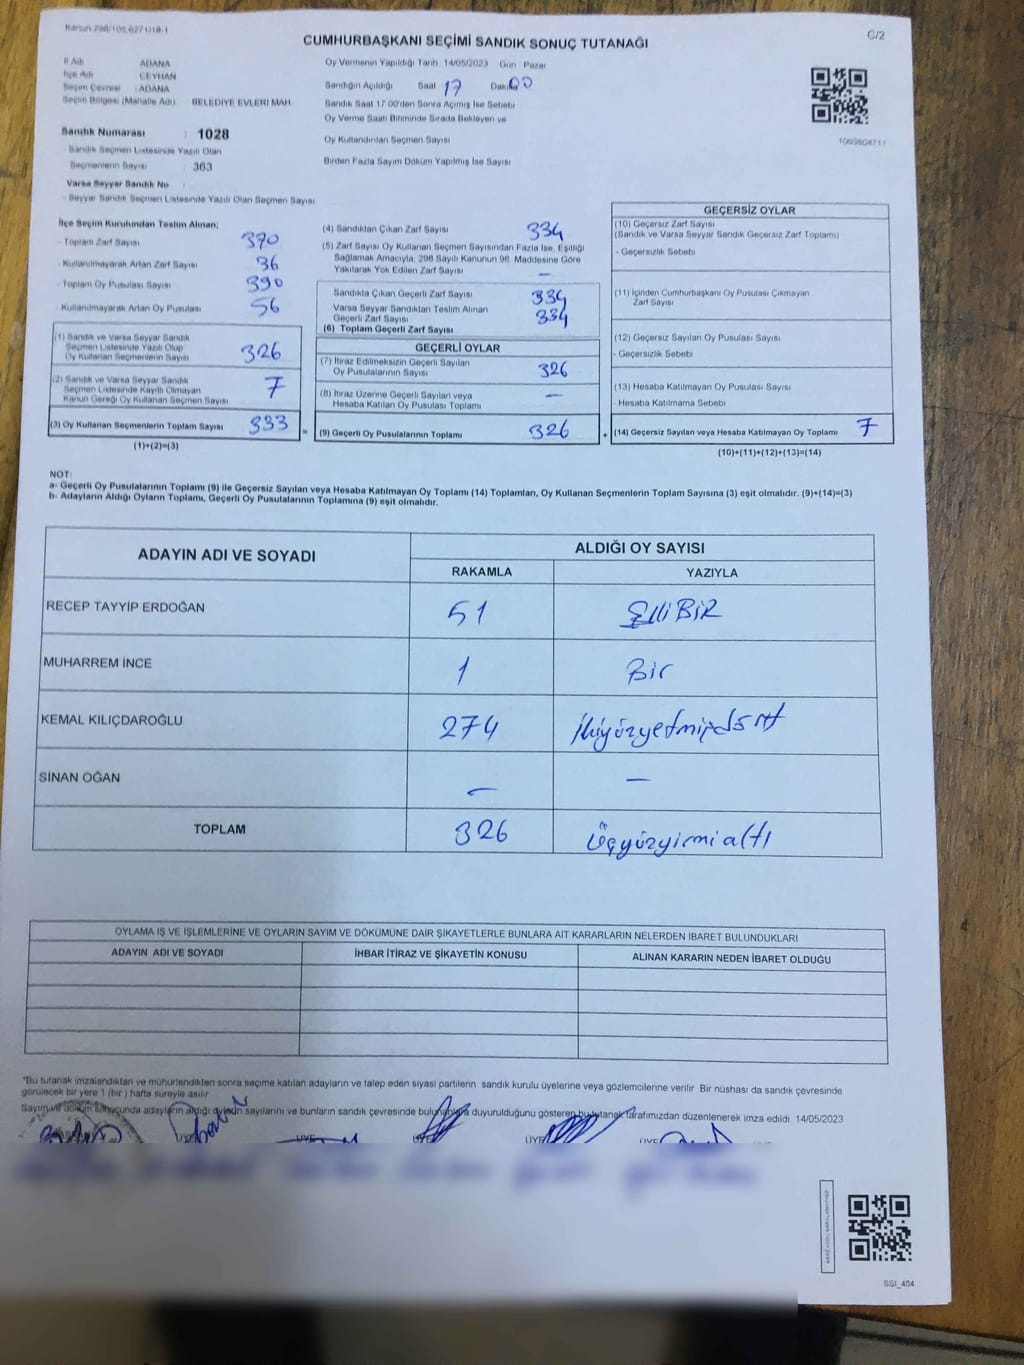 C/2
CUMHURBAŞKANI SEÇİMİ SANDIK SONUÇ TUTANAĞI
İl Adı ADANA
İlçe Adı CEYHAN
Seçim Çevresi : ADANA
Seçim Bölgesi (Mahalle Adı) BELEDİYE EVLERİ MAH.
Sandık Numarası : 1028
Sandık Seçmen Listesinde Yazılı Olan
Seçmenlerin Sayısı : 363
Varsa Seyyar Sandık No :
- Seyyar Sandık Seçmen Listesinde Yazılı Olan Seçmen Sayısı
Oy Vermenin Yapıldığı Tarih 14/05/2023 Gün Pazar
Sandığın Açıldığı Saat 17 Dakika 00
Sandık Saat 17 00'den Sonra Açımış İse Sebebi
Oy Verme Saati Bitiminde Sırada Bekleyen ve
Oy Kullandırılan Seçmen Sayısı
Birden Fazla Sayım Döküm Yapılmış İse Sayısı
İlçe Seçim Kurulundan Teslim Alınan;
- Toplam Zarf Sayısı 370
- Kullanılmayarak Artan Zarf Sayısı 36
- Toplam Oy Pusulası Sayısı 390
Kullanılmayarak Artan Oy Pusulası 56
(1) Sandık ve Varsa Seyyar Sandık
Seçmen Listesinde Yazılı Olup
Oy Kullanan Seçmenlerin Sayısı 326
(2) Sandık ve Varsa Seyyar Sandık
Seçmen Listesinde Kayıtlı Olmayan
Kanun Gereği Oy Kullanan Seçmen Sayısı 7
(3) Oy Kullanan Seçmenlerin Toplam Sayısı 333
(1)+(2)=(3)
(4) Sandıktan Çıkan Zarf Sayısı 334
(5) Zarf Sayısı Oy Kullanan Seçmen Sayısından Fazla İse, Eşitliği
Sağlamak Amacıyla, 298 Sayılı Kanunun 98. Maddesine Göre
Yakılarak Yok Edilen Zarf Sayısı —
Sandıkta Çıkan Geçerli Zarf Sayısı 334
Varsa Seyyar Sandıktan Teslim Alınan
Geçerli Zarf Sayısı 334
(6) Toplam Geçerli Zarf Sayısı
GEÇERLİ OYLAR
(7) İtiraz Edilmeksizin Geçerli Sayılan
Oy Pusulalarının Sayısı 326
(8) İtiraz Üzerine Geçerli Sayılan veya
Hesaba Katılan Oy Pusulası Toplamı —
= (9) Geçerli Oy Pusulalarının Toplamı 326
GEÇERSİZ OYLAR
(10) Geçersiz Zarf Sayısı
(Sandık ve Varsa Seyyar Sandık Geçersiz Zarf Toplamı)
- Geçersizlik Sebebi
(11) İçinden Cumhurbaşkanı Oy Pusulası Çıkmayan
Zarf Sayısı
(12) Geçersiz Sayılan Oy Pusulası Sayısı
- Geçersizlik Sebebi
(13) Hesaba Katılmayan Oy Pusulası Sayısı
- Hesaba Katılmama Sebebi
+ (14) Geçersiz Sayılan veya Hesaba Katılmayan Oy Toplamı 7
(10)+(11)+(12)+(13)=(14)
NOT:
a- Geçerli Oy Pusulalarının Toplamı (9) ile Geçersiz Sayılan veya Hesaba Katılmayan Oy Toplamı (14) Toplamları, Oy Kullanan Seçmenlerin Toplam Sayısına (3) eşit olmalıdır. (9)+(14)=(3)
b- Adayların Aldığı Oyların Toplamı, Geçerli Oy Pusulalarının Toplamına (9) eşit olmalıdır.
ADAYIN ADI VE SOYADI ALDIĞI OY SAYISI
RAKAMLA YAZIYLA
RECEP TAYYİP ERDOĞAN 51 ElliBİR
MUHARREM İNCE 1 Bir
KEMAL KILIÇDAROĞLU 274 İkiyüzyetmişdört
SİNAN OĞAN — —
TOPLAM 326 Üçyüzyirmialtı
OYLAMA İŞ VE İŞLEMLERİNE VE OYLARIN SAYIM VE DÖKÜMÜNE DAİR ŞİKAYETLERLE BUNLARA AİT KARARLARIN NELERDEN İBARET BULUNDUKLARI
ADAYIN ADI VE SOYADI İHBAR İTİRAZ VE ŞİKAYETİN KONUSU ALINAN KARARIN NEDEN İBARET OLDUĞU
*Bu tutanak imzalandıktan ve mühürlendikten sonra seçime katılan adayların ve talep eden siyasi partilerin sandık kurulu üyelerine veya gözlemcilerine verilir Bir nüshası da sandık çevresinde
görülecek bir yere 1 (bir ) hafta süreyle asılır
Sayım ve döküm sonuçunda adayların aldığı oyların sayılarını ve bunların sandık çevresinde bulunanlara duyurulduğunu gösteren bu tutanak tarafımızdan düzenlenerek imza edildi 14/05/2023
ÜYE ÜYE ÜYE ÜYE ÜYE
SSI_404